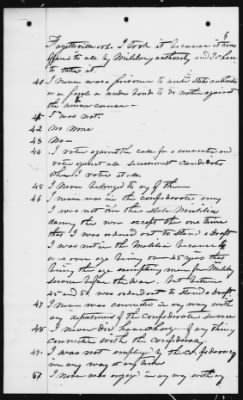 6
Fayetteville Ark I took it because it was
offered to all by Military authority and
to take it
40 I never was a prisoner to under State authority
or on parole or under bonds to do nothing against
the Union cause—
41 I was not.
42 No None
43 No—
44 I voted against the call for a convention and
voted against all secessionist candidates
when I voted at all
45 I never belonged to any of them
46 I never was in the Confederate army
I was not in the State Militia
during the war except the one time
that I was ordered out to stand a draft
I was not in the Militia because
was over age being over 45 years that
being the age exempting men from Military
service before the War. But between
45 and 50 I was ordered out to Stand a draft
47 I never was connected in any way with
any department of the Confederate service
48 I never did have charge of any thing
connected with the Confederacy.
49. I was not employed by the Confederacy
in any way at any time
50 I never was engaged in any way with any